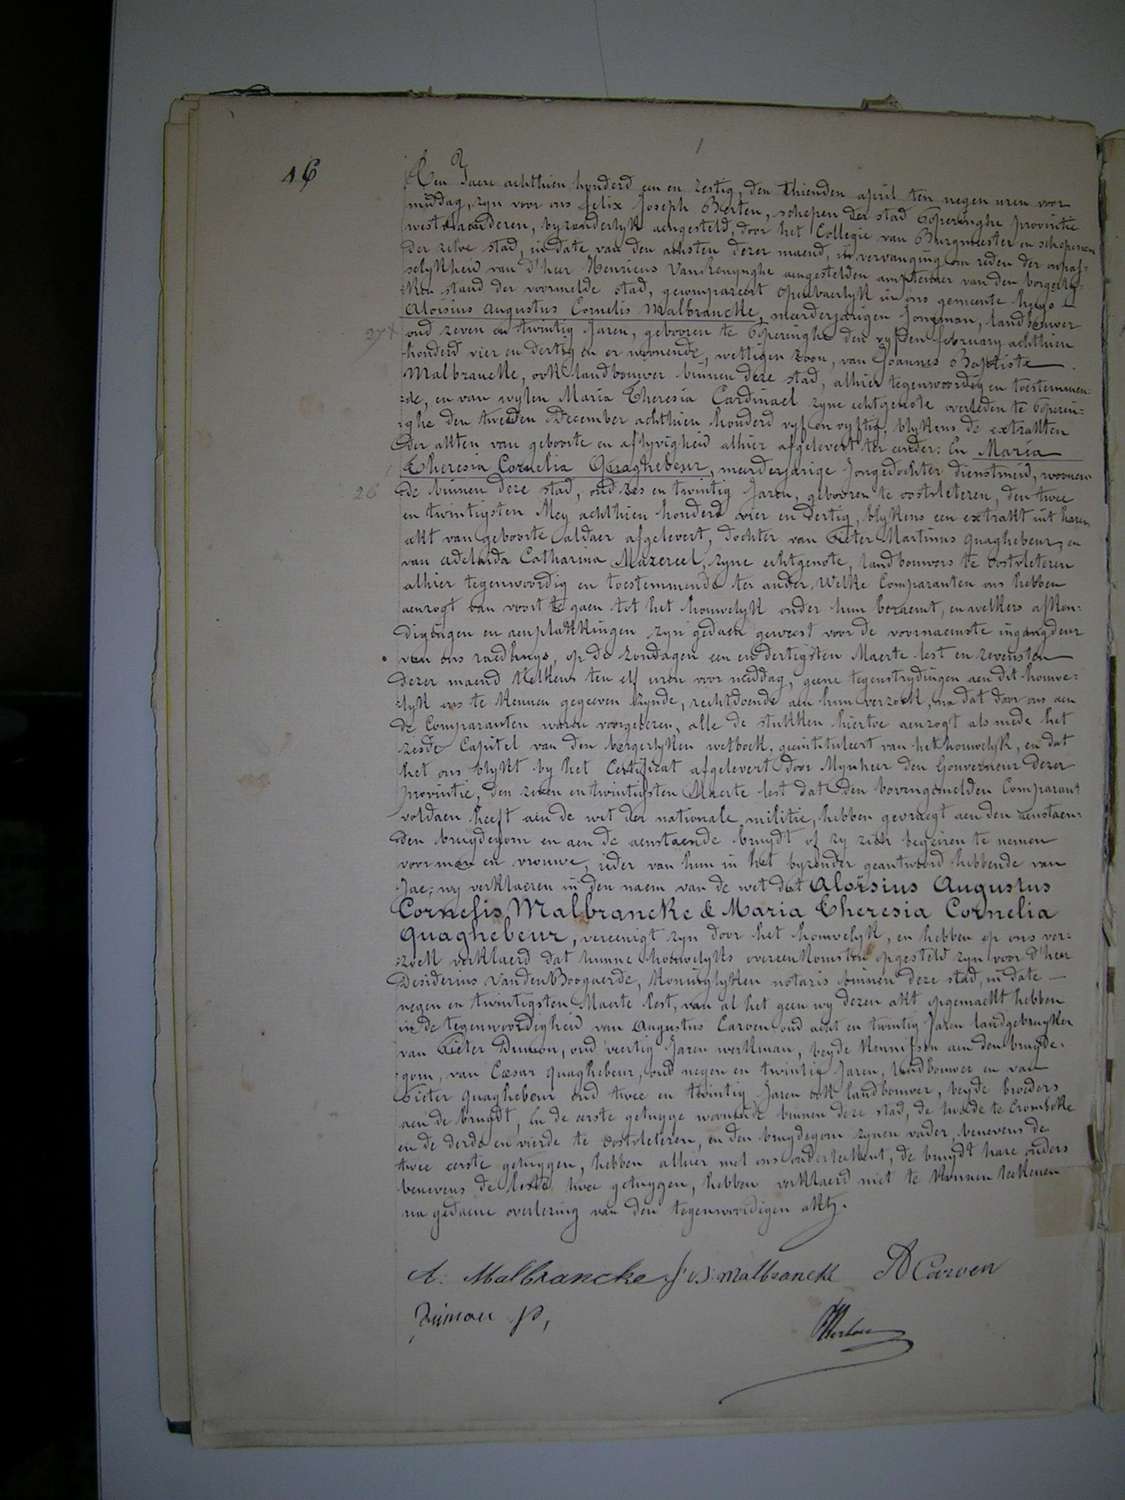 16
Den Jaere achthien honderd een en zestig, den thienden april ten negen uren voor
middag, zyn voor ons Felix Joseph Berten, schepen der stad Poperinghe provintie
westvlaenderen, byzonderlyk aengesteld, door het Collegie van Burgmeester en schepenen
der zelve stad, in date van den achsten dezer maend, in vervanging om reden der onpas-
selykheid van d'heer Henricus Vanrenynghe aengestelden amptenaer van den borgerly-
ken stand der voormelde stad, gecompareert openbaerlyk in ons gemeente huys
Aloïsius Augustus Cornelis Malbrancke, meerderjarigen Jongman, landbouwer
27
oud zeven en twintig Jaren, gebooren te Poperinghe den vyfden february achthien
honderd vier en dertig en er woonende, wettigen zoon, van Joannes Baptiste
Malbrancke, ook landbouwer binnen deze stad, alhier tegenwoordig en toestemmen-
de, en van wylen Maria Theresia Cardinael zyne echtgenote overleden te Poperin-
ghe den tweeden December achthien honderd vyf en vyftig, blykens de extrakten
der akten van geboorte en aflyvigheid alhier afgelevert ter ander: En Maria
Theresia Cornelia Quaghebeur, meerderjarige Jongedochter dienstmeid, woonen-
26
de binnen deze stad, oud zes en twintig Jaren, gebooren te oostvleteren, den twee
en twintigsten Mey achthien honderd vier en dertig, blykens een extrakt uit haren
akt van geboorte aldaer afgelevert, dochter van Pieter Martinus Quaghebeur, en
van Adelaïda Catharina Mazereel, zyne echtgenote, landbouwers te oostvleteren
alhier tegenwoordig en toestemmende ter ander. Welke Comparanten ons hebben
aenzogt van voort te gaen tot het houwelyk onder hun beraemt, en welkers afkon-
digingen en aenplakkingen zyn gedaen geweest voor de voornaemste ingangdeur
van ons raedhuys, op de zondagen een en dertigsten Maerte lest en zevensten
dezer maend telkens ten elf uren voor middag, geene tegenstrydingen aen dit houwe-
lyk ons te kennen gegeeven zynde, rechtdoende aen hun verzoek, na dat door ons aen
de Comparanten waren voorgelezen, alle de stukken hiertoe aenzogt als mede het
zesde Capitel van den borgerlyken wetboek, geintituleert van het houwelyk, en dat
het ons blykt by het Certificat afgelevert door Mynheer den Gouverneur dezer
provintie, den zeven en twintigsten Maerte lest dat den bovengemelden Comparant
voldaen heeft aen de wet der nationale militie, hebben gevraegt aen den aenstaen-
den bruydegom en aen de aenstaende bruydt of zy zich begeiren te nemen
voor man en vrouwe, ieder van hun in het byzonder geantwoord hebbende van
Jae, wy verklaeren in den naem van de wet dat Aloïsius Augustus
Cornelis Malbrancke & Maria Theresia Cornelia
Quaghebeur, vereenigt zyn door het houwelyk, en hebben op ons ver-
zoek verklaerd dat hunne houwelyks overeenkomsten opgesteld zyn voor d'heer
Desiderius VandenBoogaerde, koninglyken notaris binnen deze stad, in date
negen en twintigsten Maerte lest, van al het geen wy dezen akt opgemaekt hebben
in de tegenwoordigheid van Augustus Carven oud acht en twintig Jaren landgebruyker
van Pieter Dumon, oud veertig Jaren werkman, beyde kennissen aen den bruyde-
gom, van Cæsar Quaghebeur, oud negen en twintig Jaren, landbouwer en van
Pieter Quaghebeur oud twee en twintig Jaren ook landbouwer, beyde broeders
aen de bruydt, en de eerste getuyge woonende binnen deze stad, de tweede te Crombeke
en de derde en vierde te oostvleteren, en den bruydegom zynen vader, benevens de
twee eerste getuygen, hebben alhier met ons onderteekent, de bruydt hare ouders
benevens de leste twee getuygen, hebben verklaerd niet te konnen teekenen
na gedaene overlezing van den tegenwoordigen akt.
A. Malbrancke J B Malbranck A Carven
Dumon P,